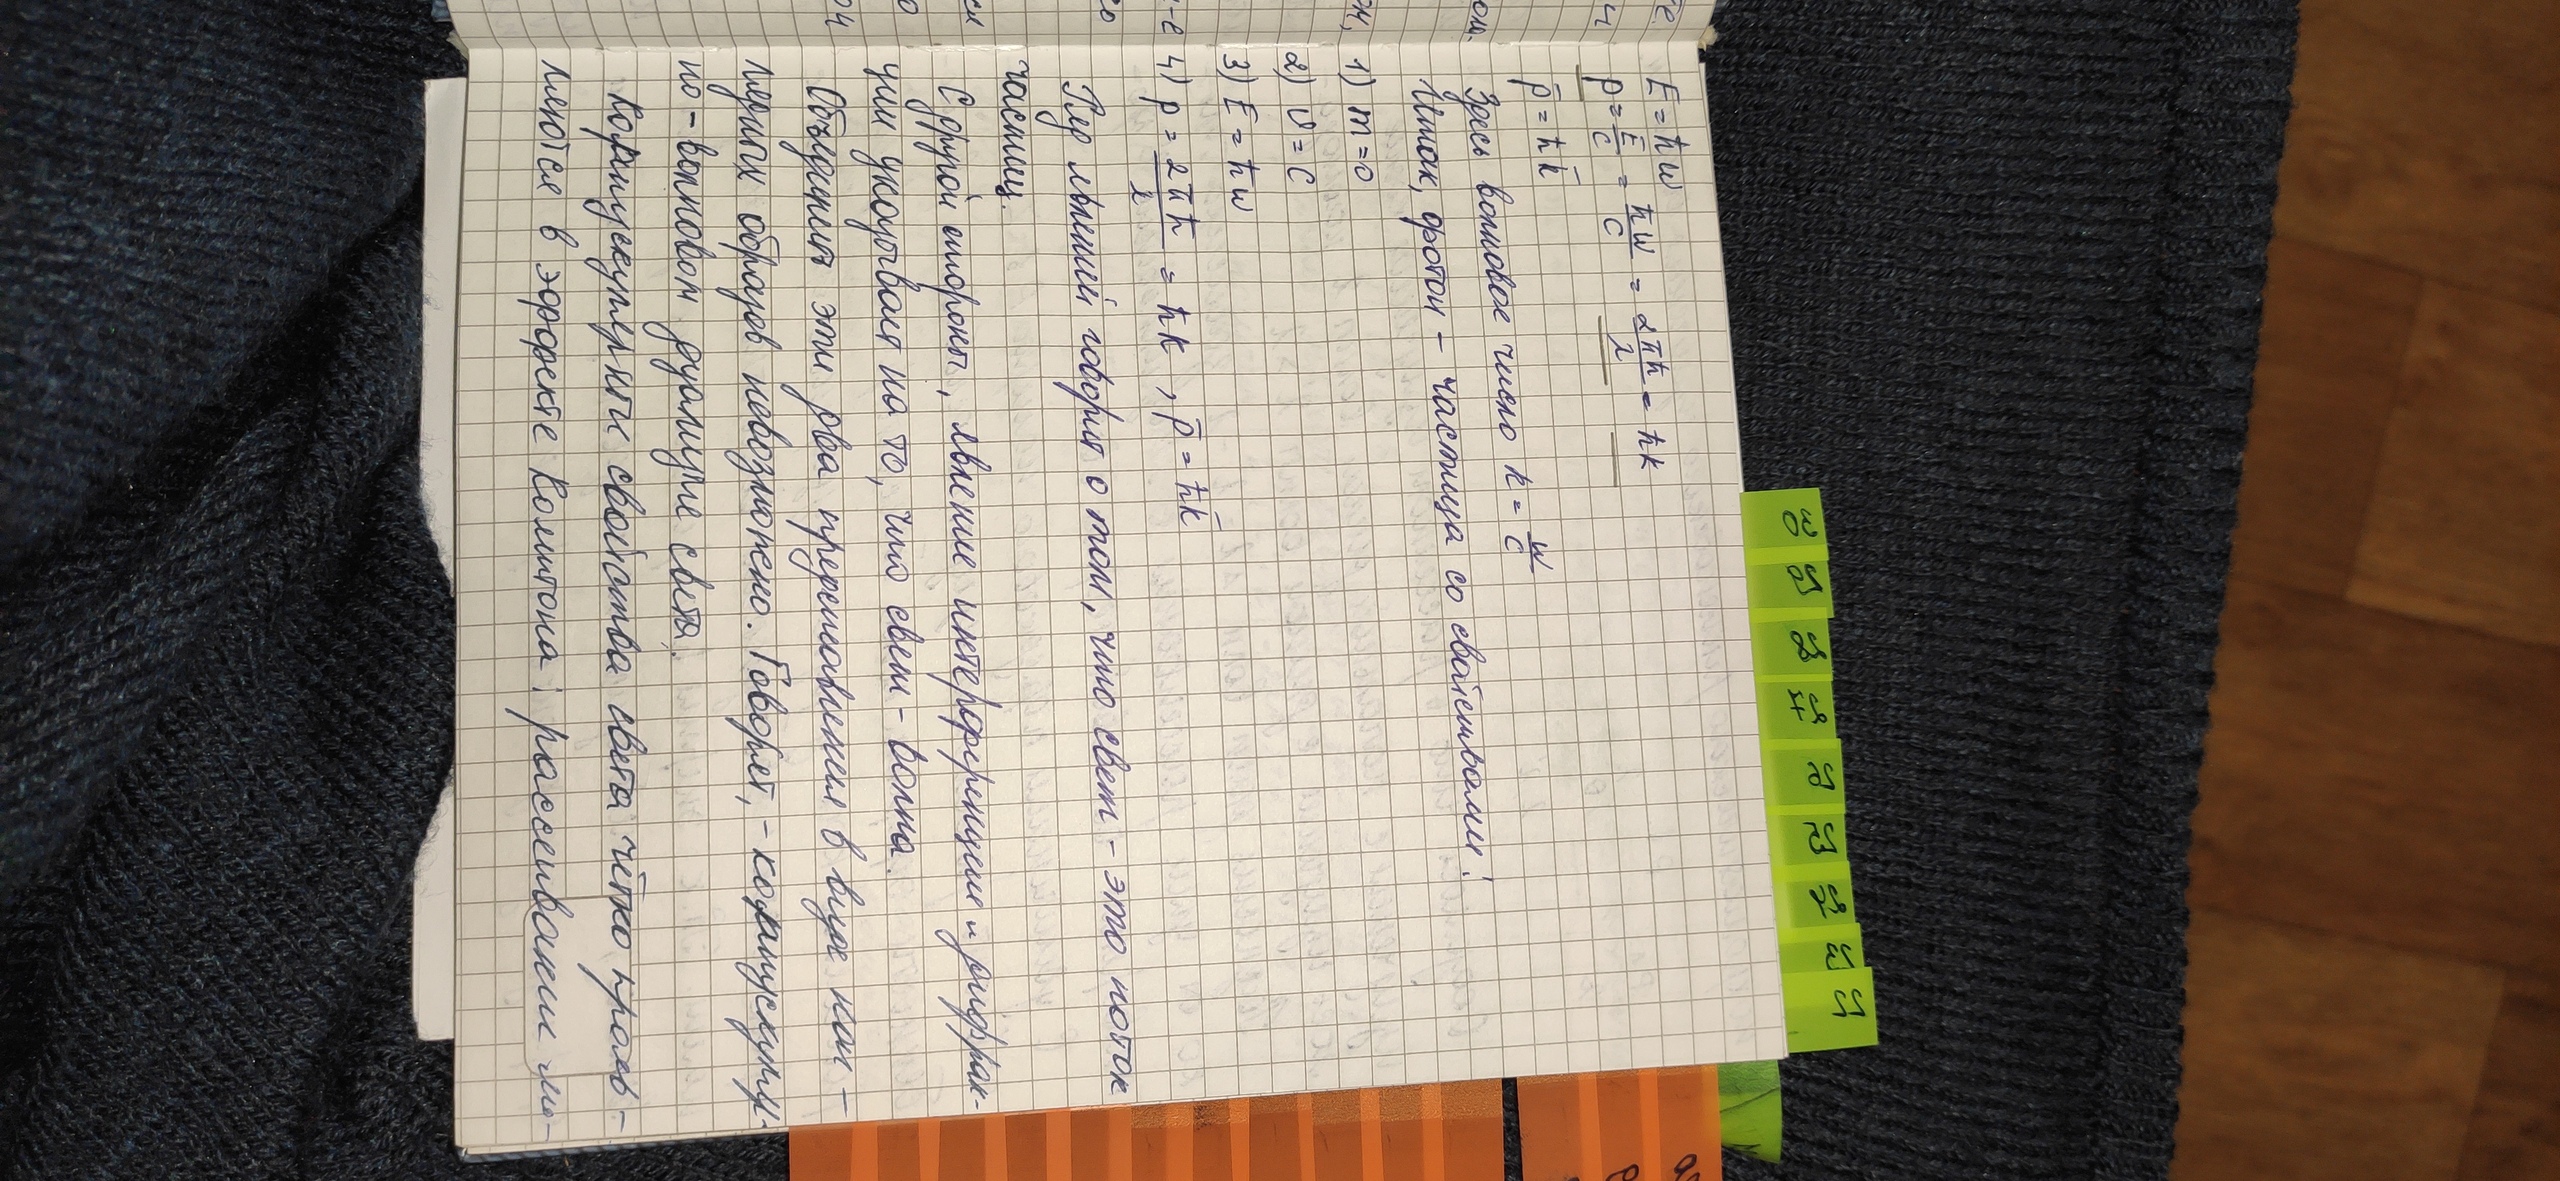 E = ħω
p = E/c = ħω/c = 2πħ/λ = ħk
p̄ = ħk̄
Здесь волновое число k = ω/c
Итак, фотон – частица со свойствами:
1) m = 0
2) υ = c
3) E = ħω
4) p = 2πħ/λ = ħk , p̄ = ħk̄
Ряд явлений говорит о том, что свет – это поток
частиц.
С другой стороны, явление интерференции и дифрак-
ции указывает на то, что свет – волна.
Объединить эти два представления в виде наг-
лядных образов невозможно. Говорят, – корпускуляр-
но – волновом дуализме света.
Корпускулярные свойства света чётко прояв-
ляются в эффекте Комптона: рассеивании
30